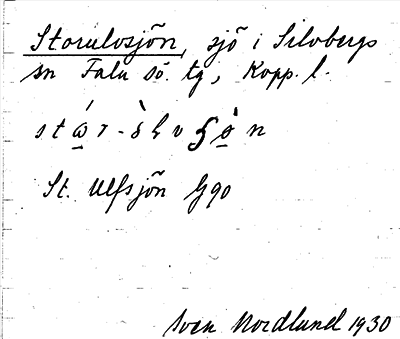 Storulvsjön, sjö i Silvbergs
sn Falu sö. tg, Kopp. l.
St. Ulfsjön G90
Sven Nordlund 1930